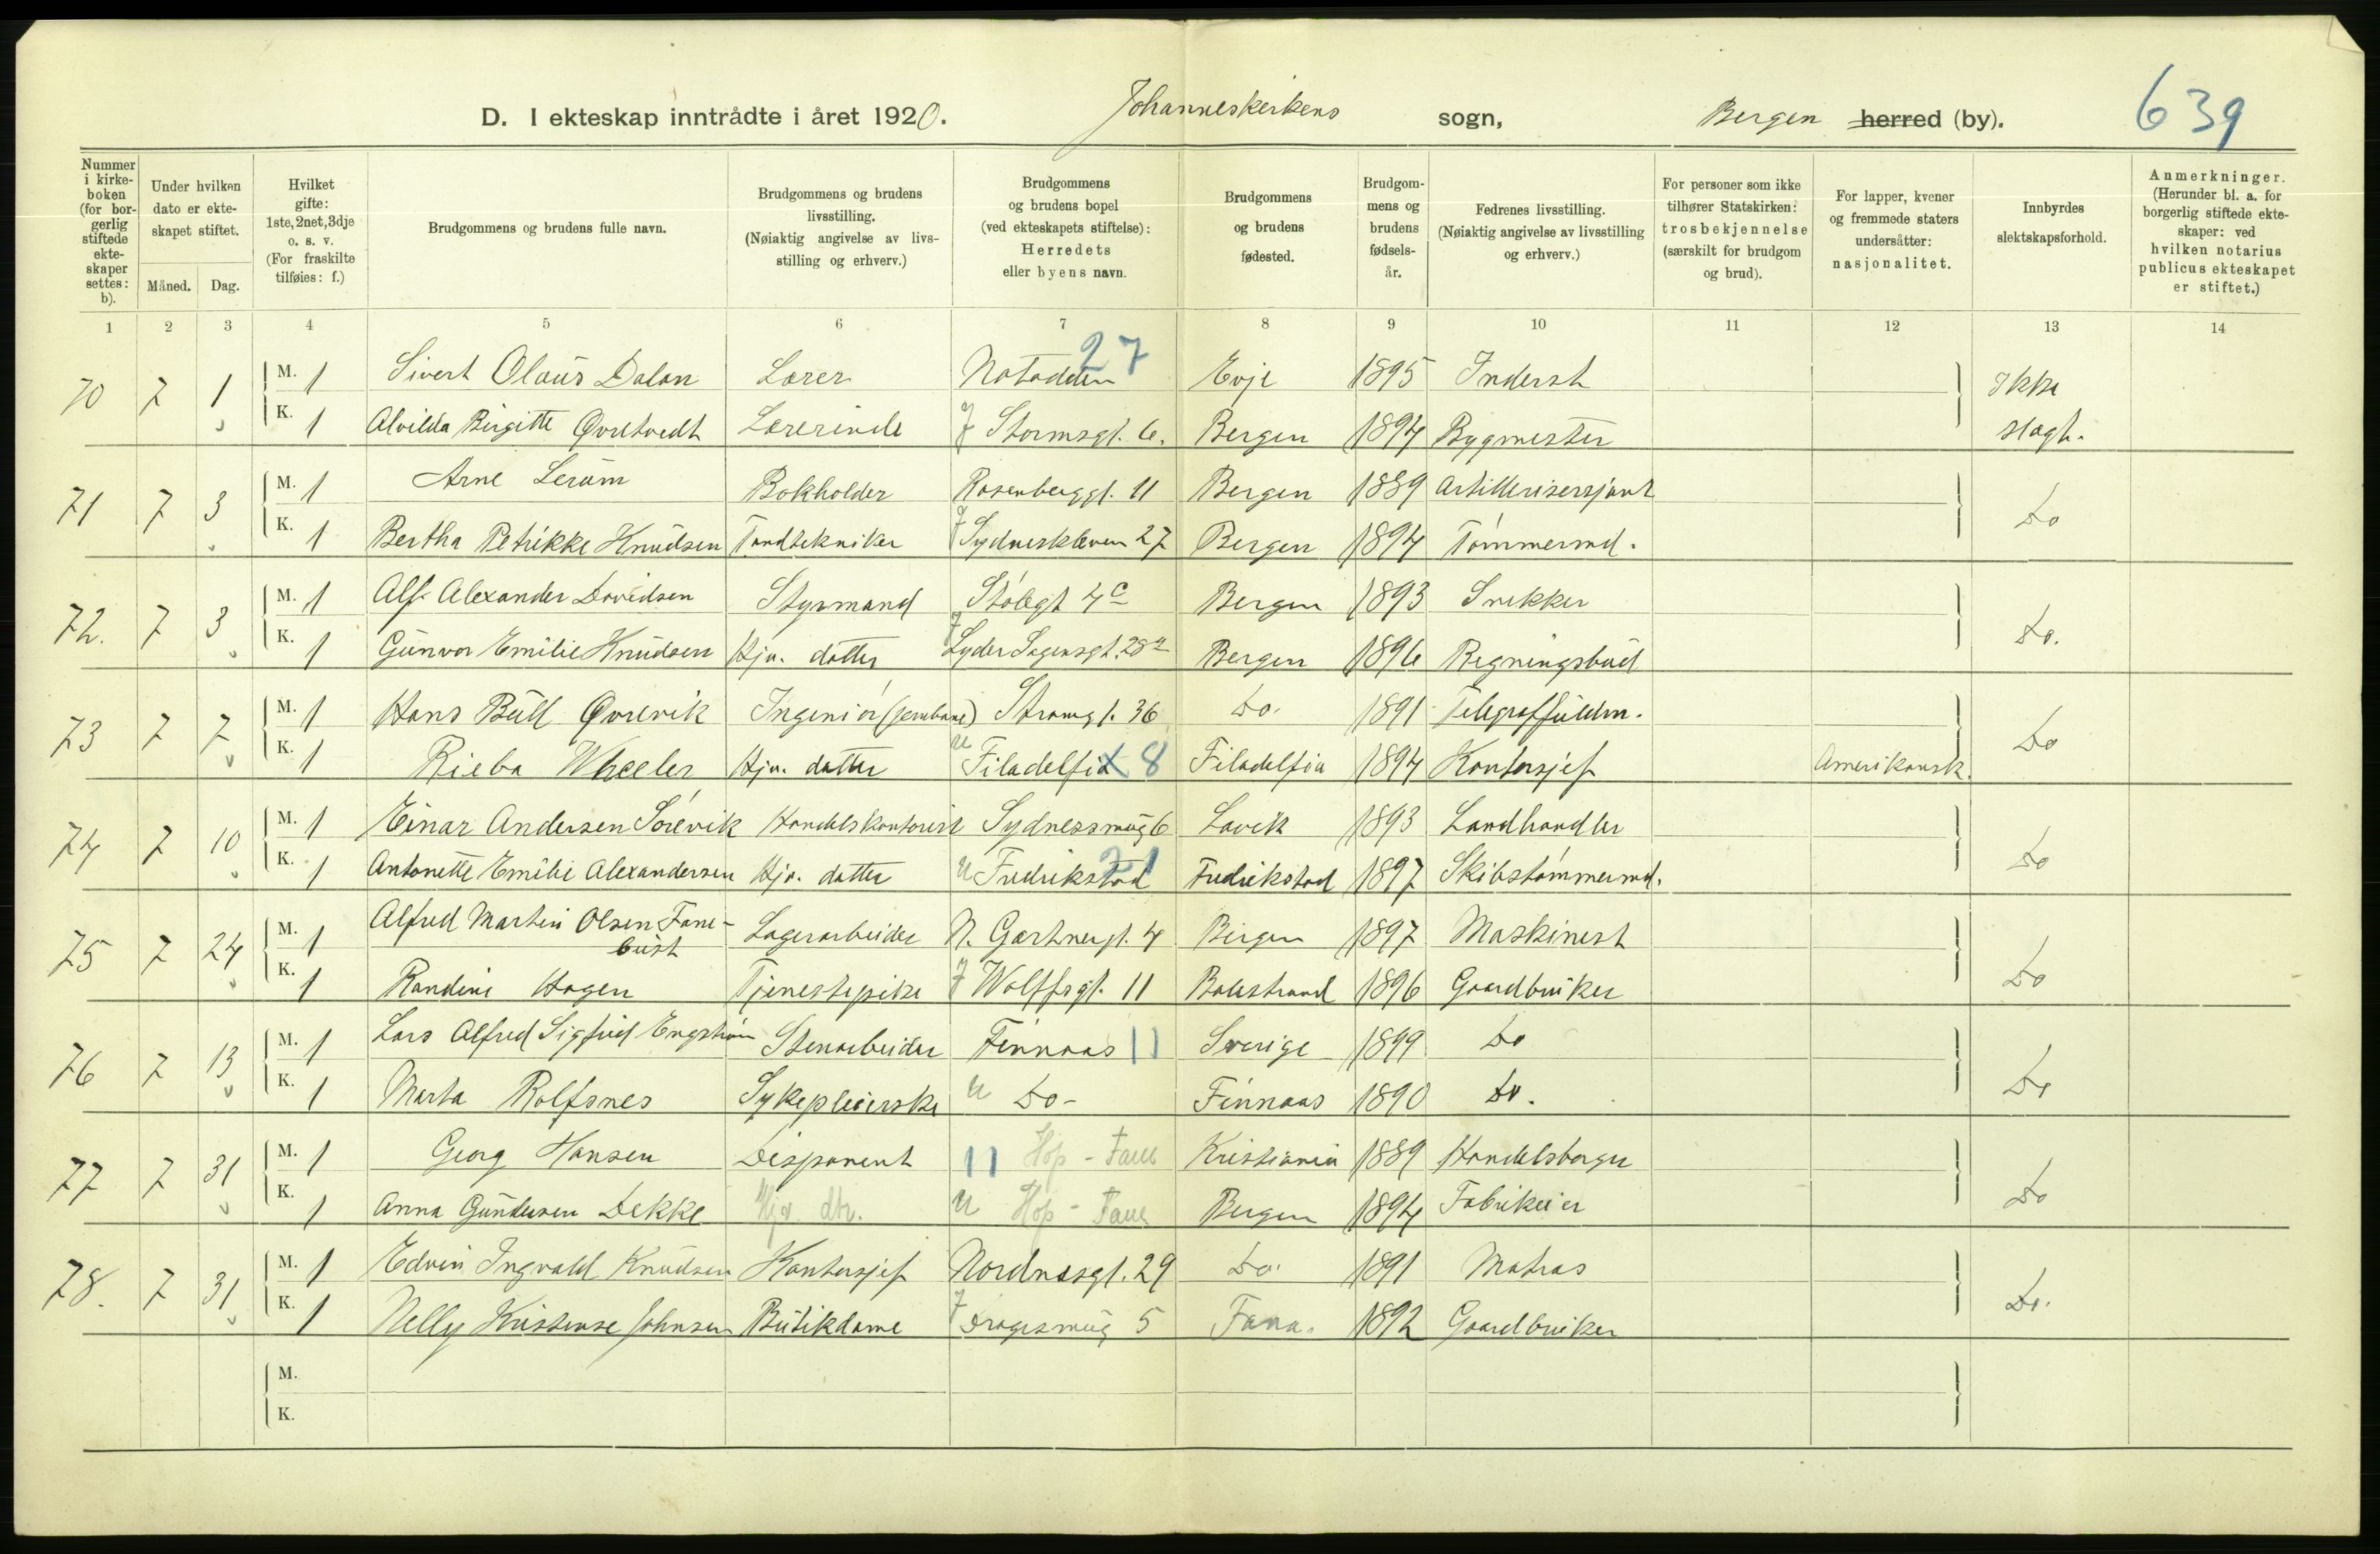 D. I ekteskap inntrådte i året 1920. Johanneskirkens sogn, Bergen herred (by). 639
Nummer i kirke-boken (for bor-gerlig stiftede ekte-skaper settes: b).
Under hvilken dato er ekte-skapet stiftet.
Måned. Dag.
Hvilket gifte: 1ste, 2net, 3dje o. s. v. (For fraskilte tilføies: f.)
Brudgommens og brudens fulle navn.
Brudgommens og brudens livsstilling. (Nøiaktig angivelse av livs-stilling og erhverv.)
Brudgommens og brudens bopel (ved ekteskapets stiftelse): Herredets eller byens navn.
Brudgommens og brudens fødested.
Brudgom-mens og brudens fødsels-år.
Fedrenes livsstilling. (Nøiaktig angivelse av livsstilling og erhverv.)
For personer som ikke tilhører Statskirken: trosbekjennelse (særskilt for brudgom og brud).
For lapper, kvener og fremmede staters undersåtter: nasjonalitet.
Innbyrdes slektskapsforhold.
Anmerkninger. (Herunder bl. a. for borgerlig stiftede ekte-skaper: ved hvilken notarius publicus ekteskapet er stiftet.)
1 2 3 4 5 6 7 8 9 10 11 12 13 14
70 7 1 M. 1 Sivert Olaus Dalan Lærer Notodden 27 Evje 1895 Inderst Ikke
K. 1 Alvilda Birgitte Øvretvedt Lærerinde Stormsgt. 6. Bergen 1894 Bygmester slægt.
71 7 3 M. 1 Arne Lerum Bokholder Rosenberggt. 11 Bergen 1889 Artillerisersjant Do
K. 1 Bertha Petrikke Knudsen Tandtekniker Sydneskleven 27 Bergen 1894 Tømmermd.
72. 7 3 M. 1 Alf Alexander Davidsen Styrmand Stølegt 4c Bergen 1893 Snekker Do.
K. 1 Gunvor Emilie Knudsen Hjv. datter Lyder Sagensgt. 28a Bergen 1896 Regningsbud
73 7 7 M. 1 Hans Bull Øvrevik Ingeniør (jernbane) Strømgt. 36 Do. 1891 Telegraffuldm. Do
K. 1 Rieba Wheeler Hjv. datter u Filadelfia 8 Filadelfia 1894 Kontorsjef Amerikansk.
74 7 10 M. 1 Einar Andersen Sørevik Handelskontorist Sydnessmug 6 Lavik 1893 Landhandler Do
K. 1 Antonette Emilie Alexandersen Hjv. datter u Fredrikstad 21 Fredrikstad 1897 Skibstømmermd.
75 7 24 M. 1 Alfred Martin Olsen Fane-
bust Lagerarbeider N. Gartnergt. 4 Bergen 1897 Maskinist Do
K. 1 Randine Hagen Tjenestepike Wolffsgt. 11 Balestrand 1896 Gaardbruker
76 7 13 M. 1 Lars Alfred Sigfrid Engstrøm Stenarbeider Finnaas 11 Sverige 1899 Do Do
K. 1 Marta Rolfsnes Sykepleierske u Do- Finnaas 1890 Do.
77 7 31 M. 1 Georg Hansen Disponent 11 Hop - Fane Kristiania 1889 Handelsborger Do
K. 1 Anna Gundersen Dekke Hjv. dtr. u Hop - Fane Bergen 1894 Fabrikeier
78. 7 31 M. 1 Edvin Ingvald Knudsen Kontorsjef Nordnesgt. 29 Do. 1891 Matros Do.
K. 1 Nelly Kristense Johnsen Butikdame Dragesmug 5 Fana. 1892 Gaardbruker
M.
K.